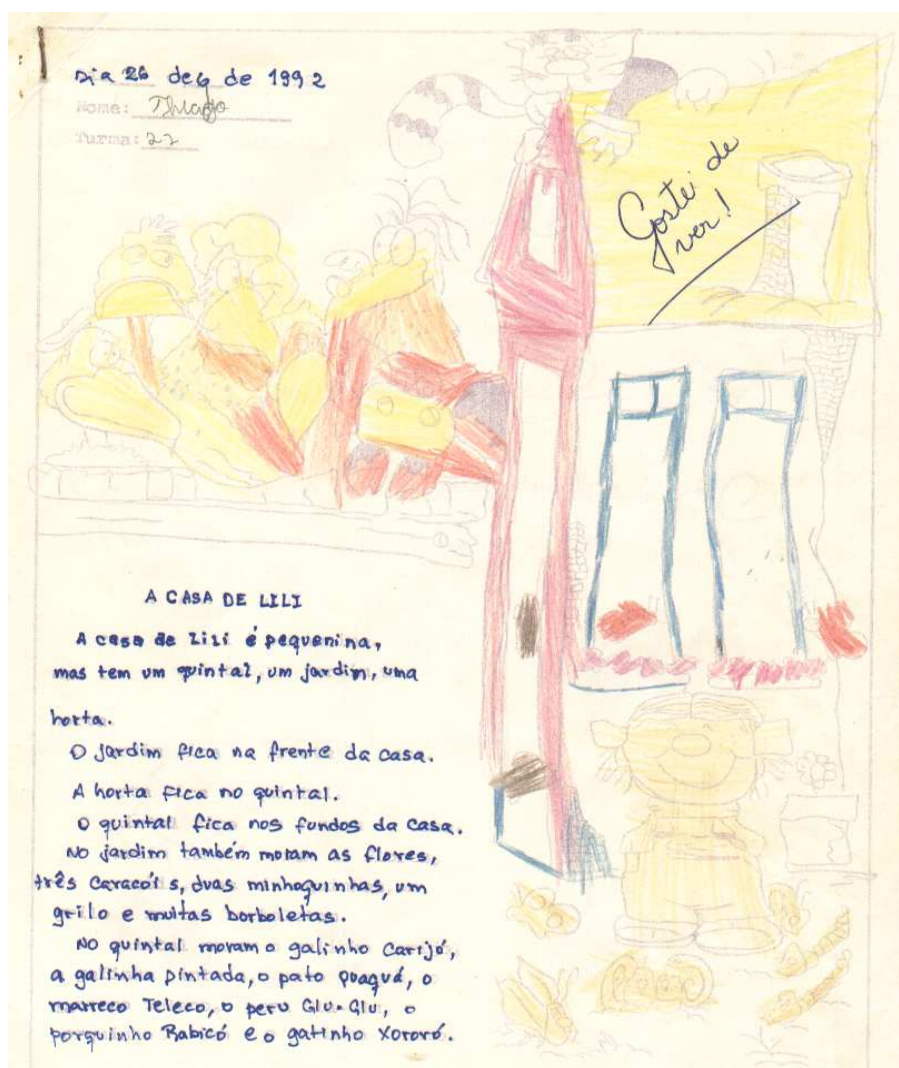 Dia 26 de 6 de 1992
Nome: Thiago
Turma: 22
Gostei de
ver!
A CASA DE LILI
A casa de Lili é pequenina,
mas tem um quintal, um jardim, uma
horta.
O jardim fica na frente da casa.
A horta fica no quintal.
O quintal fica nos fundos da casa.
No jardim também moram as flores,
três caracóis, duas minhoquinhas, um
grilo e muitas borboletas.
No quintal moram o galinho Carijó,
a galinha pintada, o pato Quaquá, o
marreco Teleco, o peru Glu-Glu, o
porquinho Rabicó e o gatinho Xororó.